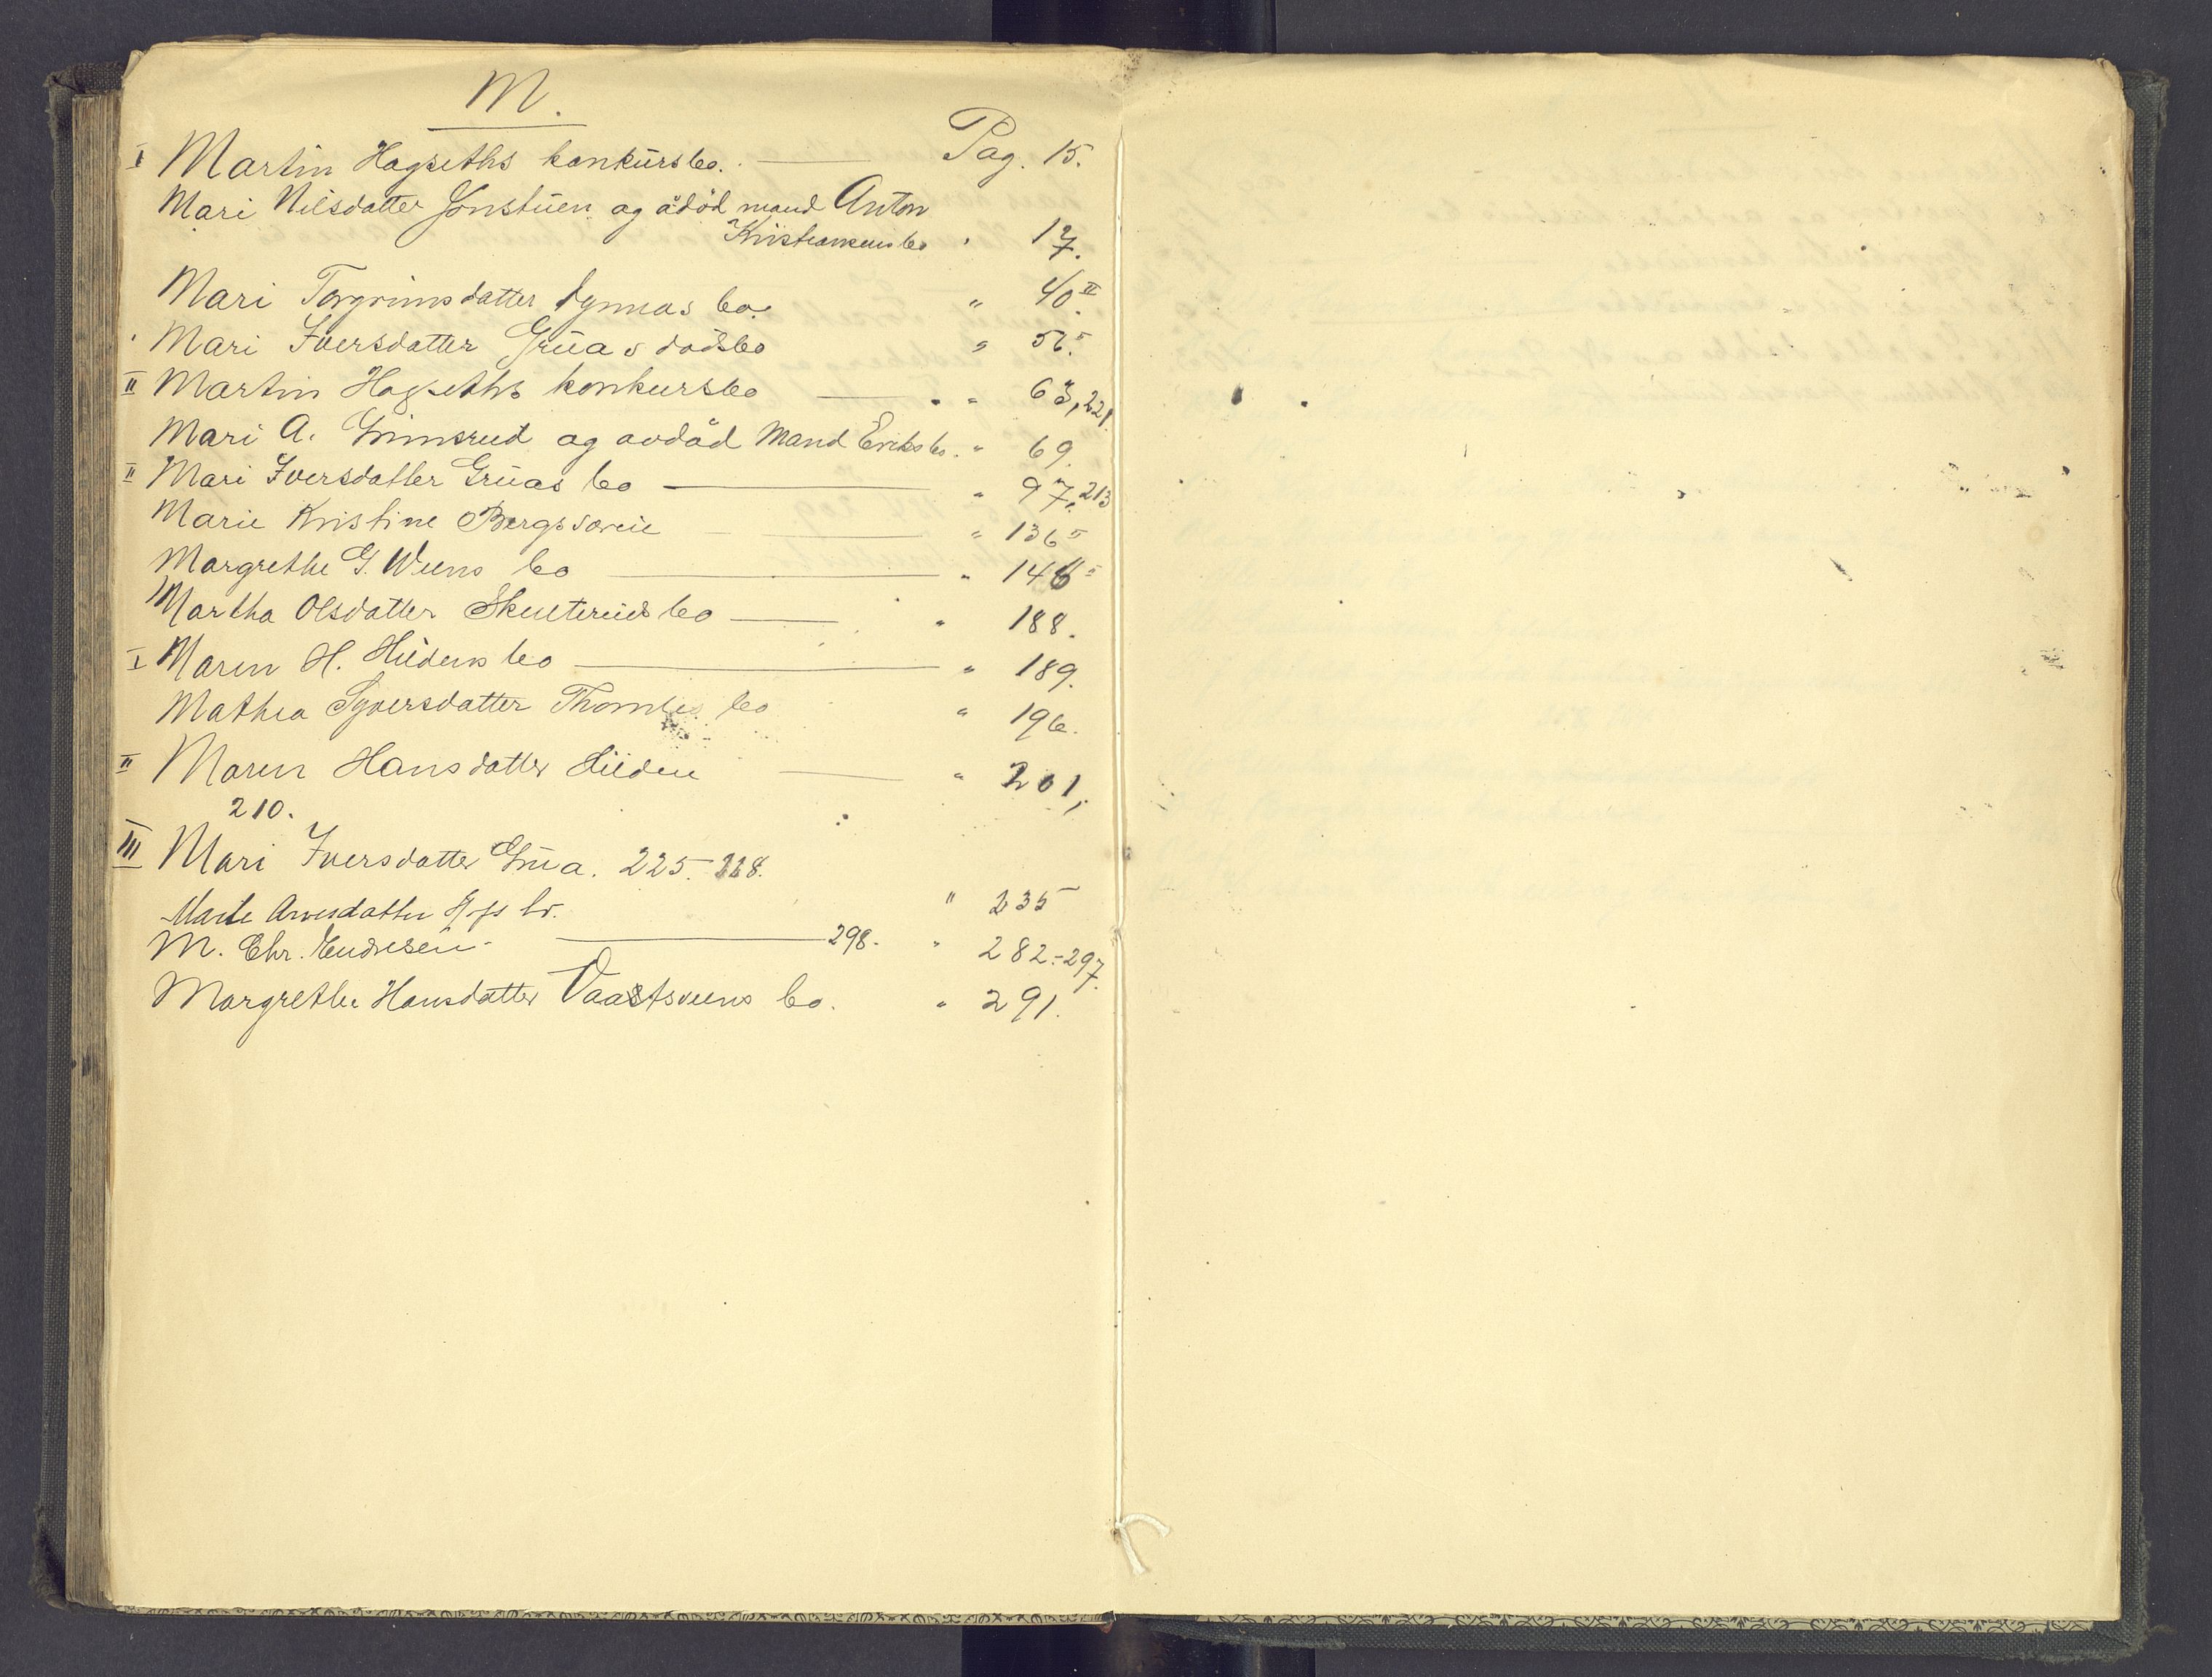 M.
I Martin Hagseths konkursbo. Pag. 15.
Mari Nilsdatter Jonstuen og ådöd mand Anton
Kristiansens bo " 17.
Mari Torgrimsdatter Synnas bo. " 40 II
Mari Iversdatter Gruas dödsbo " 56.
II Martin Hagseths konkursbo " 63, 221.
Mari A. Grimsrud og avdöd Mand Eriks bo. " 69.
II Mari Iversdatter Gruas bo " 97. 213
Marie Kristine Bergssveie " 136
Margrethe G. Wiens bo " 146
Martha Olsdatter Skulterud bo " 188.
I Maren H. Hildens bo " 189.
Mathea Syversdatter bo " 196.
II Maren Hansdatter Hilden " 201,
210.
III Mari Iversdatter Grua. 225. 228.
Marte Arnesdatter bo. " 235
M. Chr. Endresen 298. " 282-297.
Margrethe Hansdatter Vaastsveens bo. " 291.